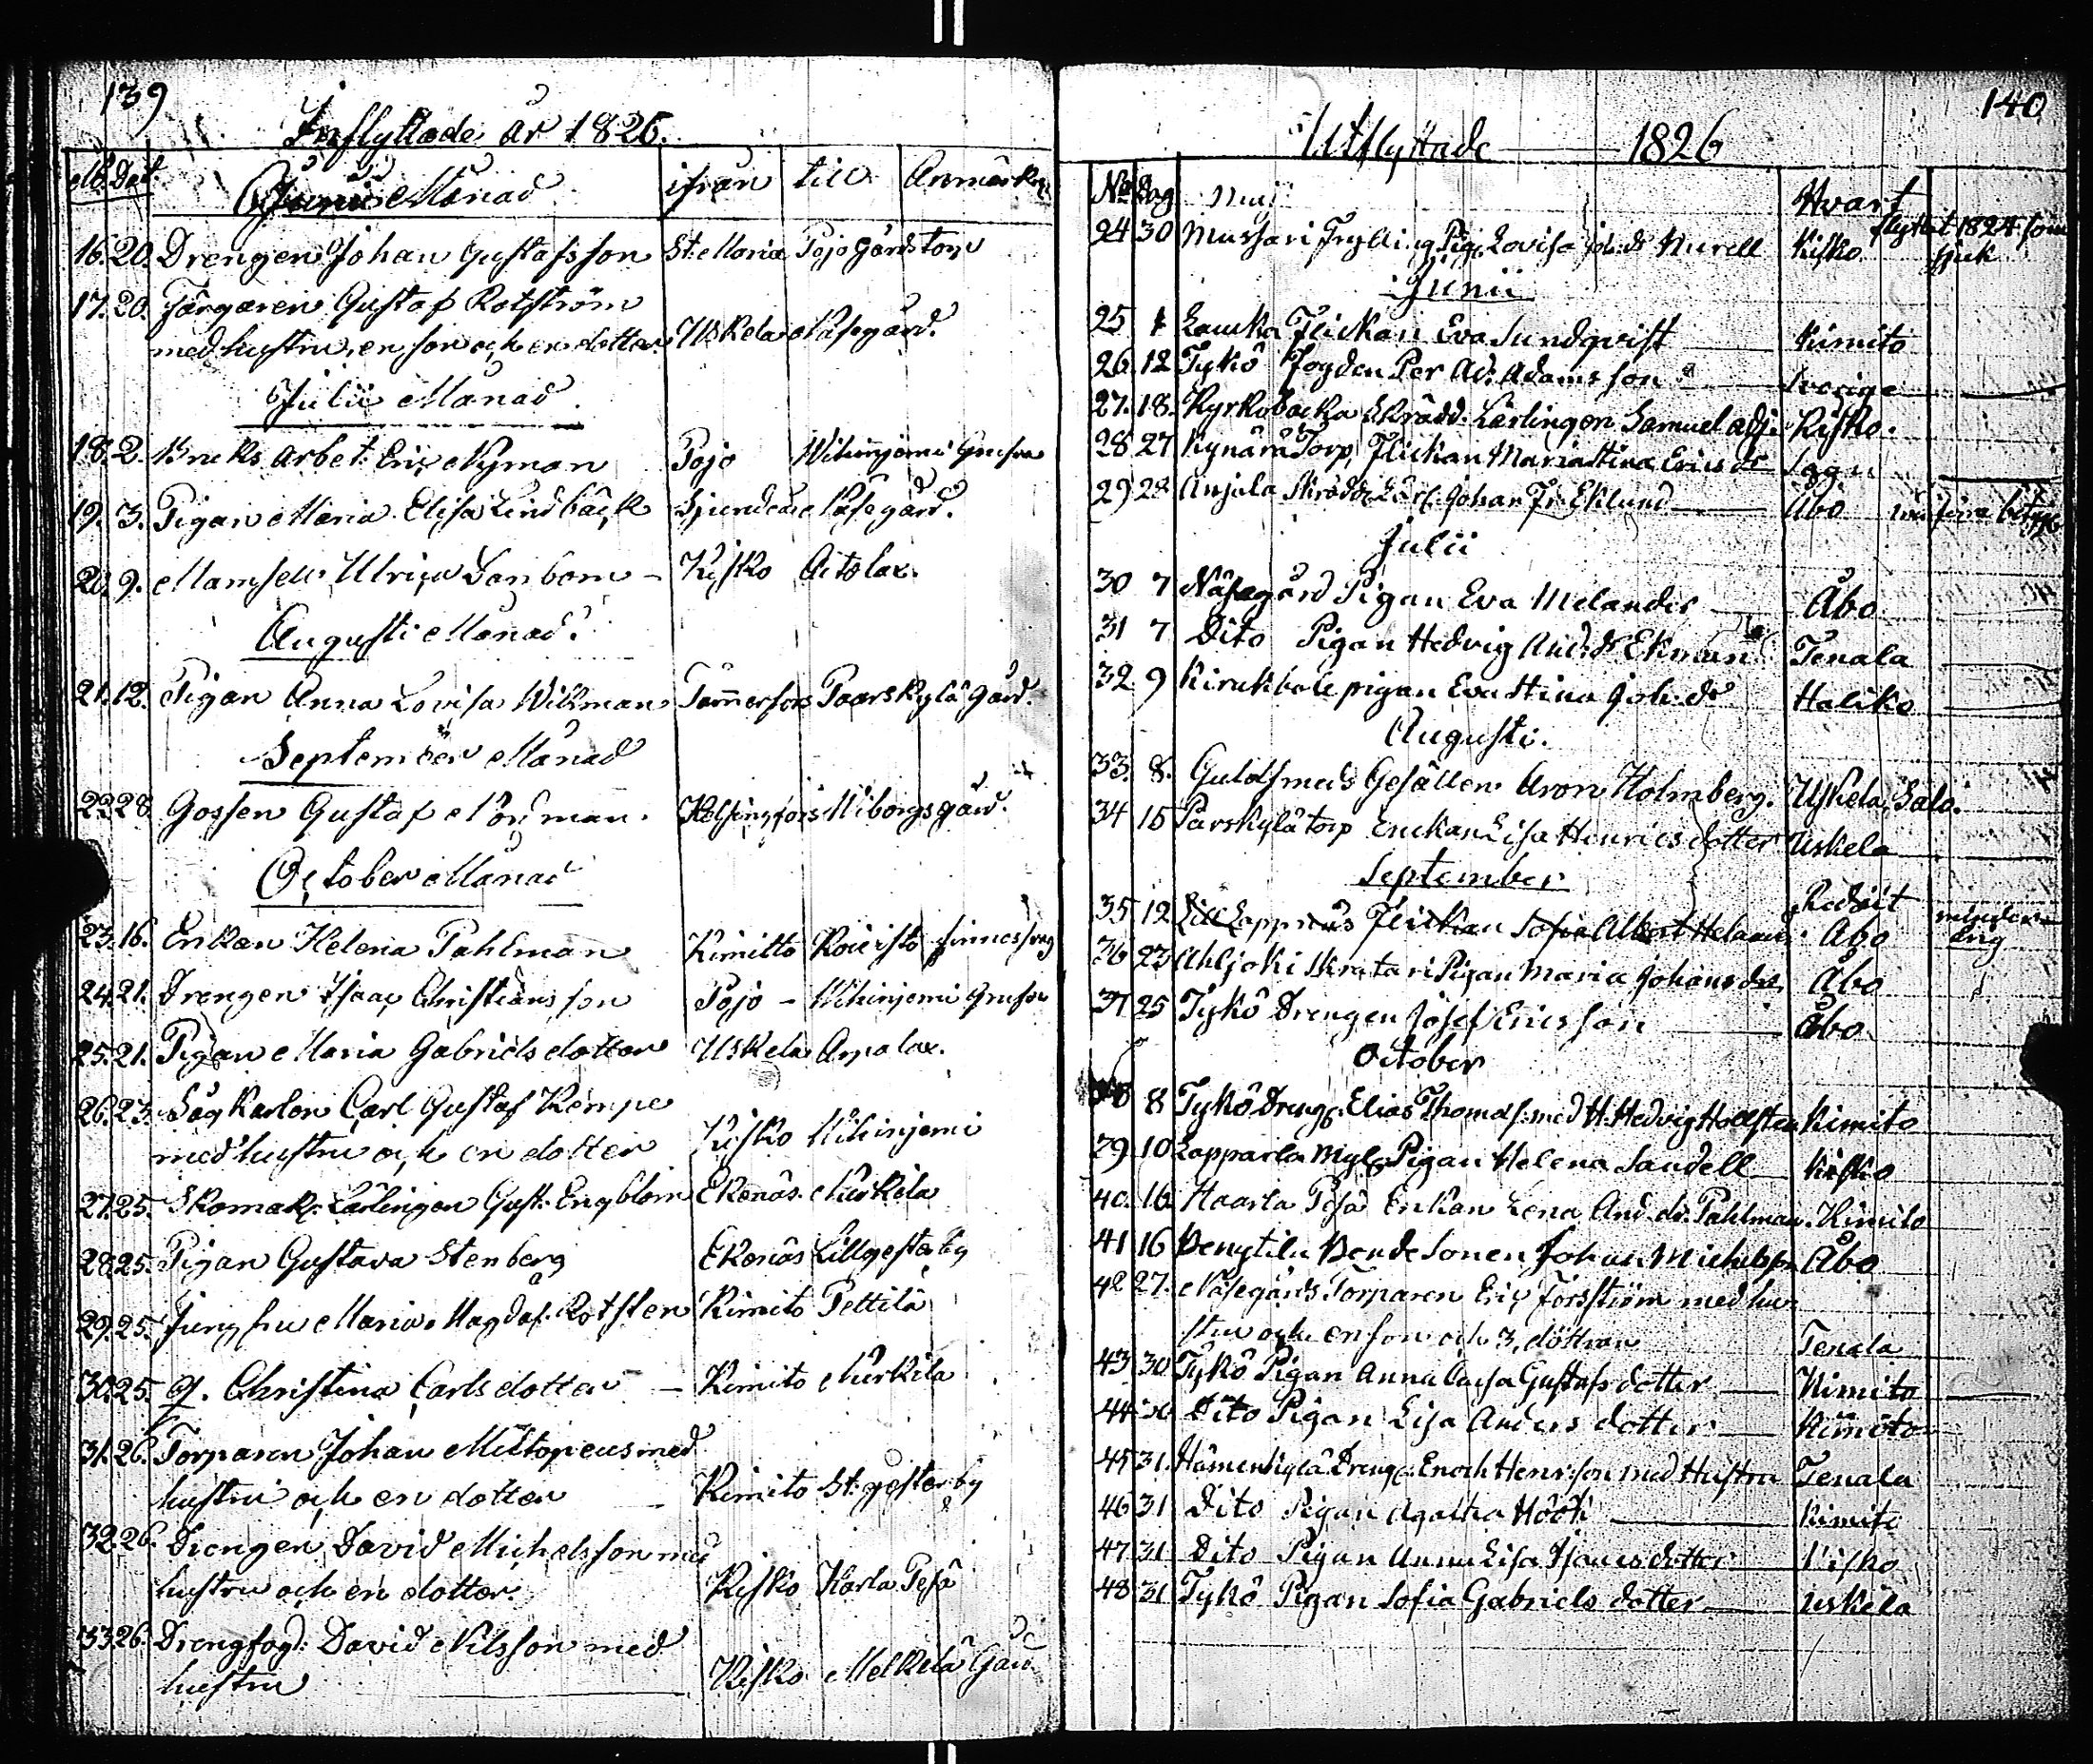 139
Inflyttade år 1826.
No. Dat. Junii Månad ifrån till Anmärkn.
16. 20. Drengen Johan Gustafsson St. Maria Pojo gårds torp
17. 20. Färgaren Gustaf Rotström
med hustru, en son och en dotter. Uskela Näsegård.
Julii Månad
18. 2. Bruks arbet: Eric Nyman Pojo Wihinjemi
19. 3. Pigan Maria Elisa Lindbäck Sjundeå Näsegård.
20. 9. Mamsell Ulrica Sanbom Kisko
Augusti Månad.
21. 12. Pigan Anna Lovisa Wikman Tam̄erfors Paarskylä Gård.
September Månad
22. 28. Gossen Gustaf Nordman. Helsingfors Wiborgs gård.
October Månad
23. 16. Enkan Helena Pahlman Kimitto Koivisto
24. 21. Drengen Isaac Christiansson Pojo - Wihinjemi
25. 21. Pigan Maria Gabrielsdotter Uskela
26. 23. Såg Karlen Carl Gustaf Kempe
med hustru och en dotter Kisko Wihinjemi
27. 25. Skomak: Lärlingen Gust: Engblom Ekenäs Nurkila
28. 25. Pigan Gustava Stenberg Ekenäs Lillgesterby
29. 25. Jungfru Maria Magdal. Rotsten Kimito Pettilä
30. 25. Christina Carlsdotter - Kimito Nurkila
31. 26. Torparen Johan med
hustru och en dotter - Kimito St: gesterby
32. 26. Drengen David Michelsson med
hustru och en dotter. Kisko Harla Peså
33. 26. Drengfogd: David Nilsson med
hustru Kisko Melkilä Gård.
140
Utflyttade 1826
No Dag Maji Hvart
24 30 Mussari Pig. Lovisa Joh: dr Murell Kisko flyttat 1824 som
sjuk
Junii
25 1 Flickan Eva Sundqvist Kimito
26. 12 Tykö Fogden Per Ad: Adamsson Sverige
27. 18. Kyrkobacka Skrädd. Lärlingen Samuel Adj. Kisko.
28 27 Kynärä Torp, Flickan Maria Stina Erics dr
29 28 Anjala Skrädd. Lärl. Johan Fr. Eklund Åbo
Julii
30 7 Näsegård Pigan Eva Melander Åbo
31 7 Dito Pigan Hedvig And: dr Ekman Tenala
32 9 pigan Eva Stina Joh: dr Haliko
Augusti.
33. 8. Guldsmeds Gesällen Aron Holmberg. Uskela, Salo.
34 15 Parskylä torp Enckan Lisa Henricsdotter Uskela
September
35 12 Flickan Sofia Åbo
36 23 Ahljoki Pigan Maria Johans dr Åbo
37 25 Tykö Drengen Josef Ericsson Åbo
October
8 Tykö Dreng. Elias Thomas: med H. Hedvig Hollsten Kimito
39. 10 Lapparla Pigan Helena Sandell Kisko
40. 16 Haarla Peså Enkan Lena And. dr. Pahlman. Kimito
41 16 Bonde Sonen Johan Michelsson Åbo
42 27. Näsegårds Torparen Eric Forsström med hu-
stru och en son och 3, döttrar Tenala
43 30 Tykö Pigan Anna Caisa Gustafs dotter Kimito
44 30 Dito Pigan Lisa Anders dotter Kimito
45 31. Hämenkylä Dreng. Enoch Henr:son med Hustru Tenala
46 31 Dito Pigan Agatha Höök Kimito
47 31 Dito Pigan Anna Lisa Isaacsdotter Kisko
48 31 Tykö Pigan Sofia Gabriels dotter Uskela